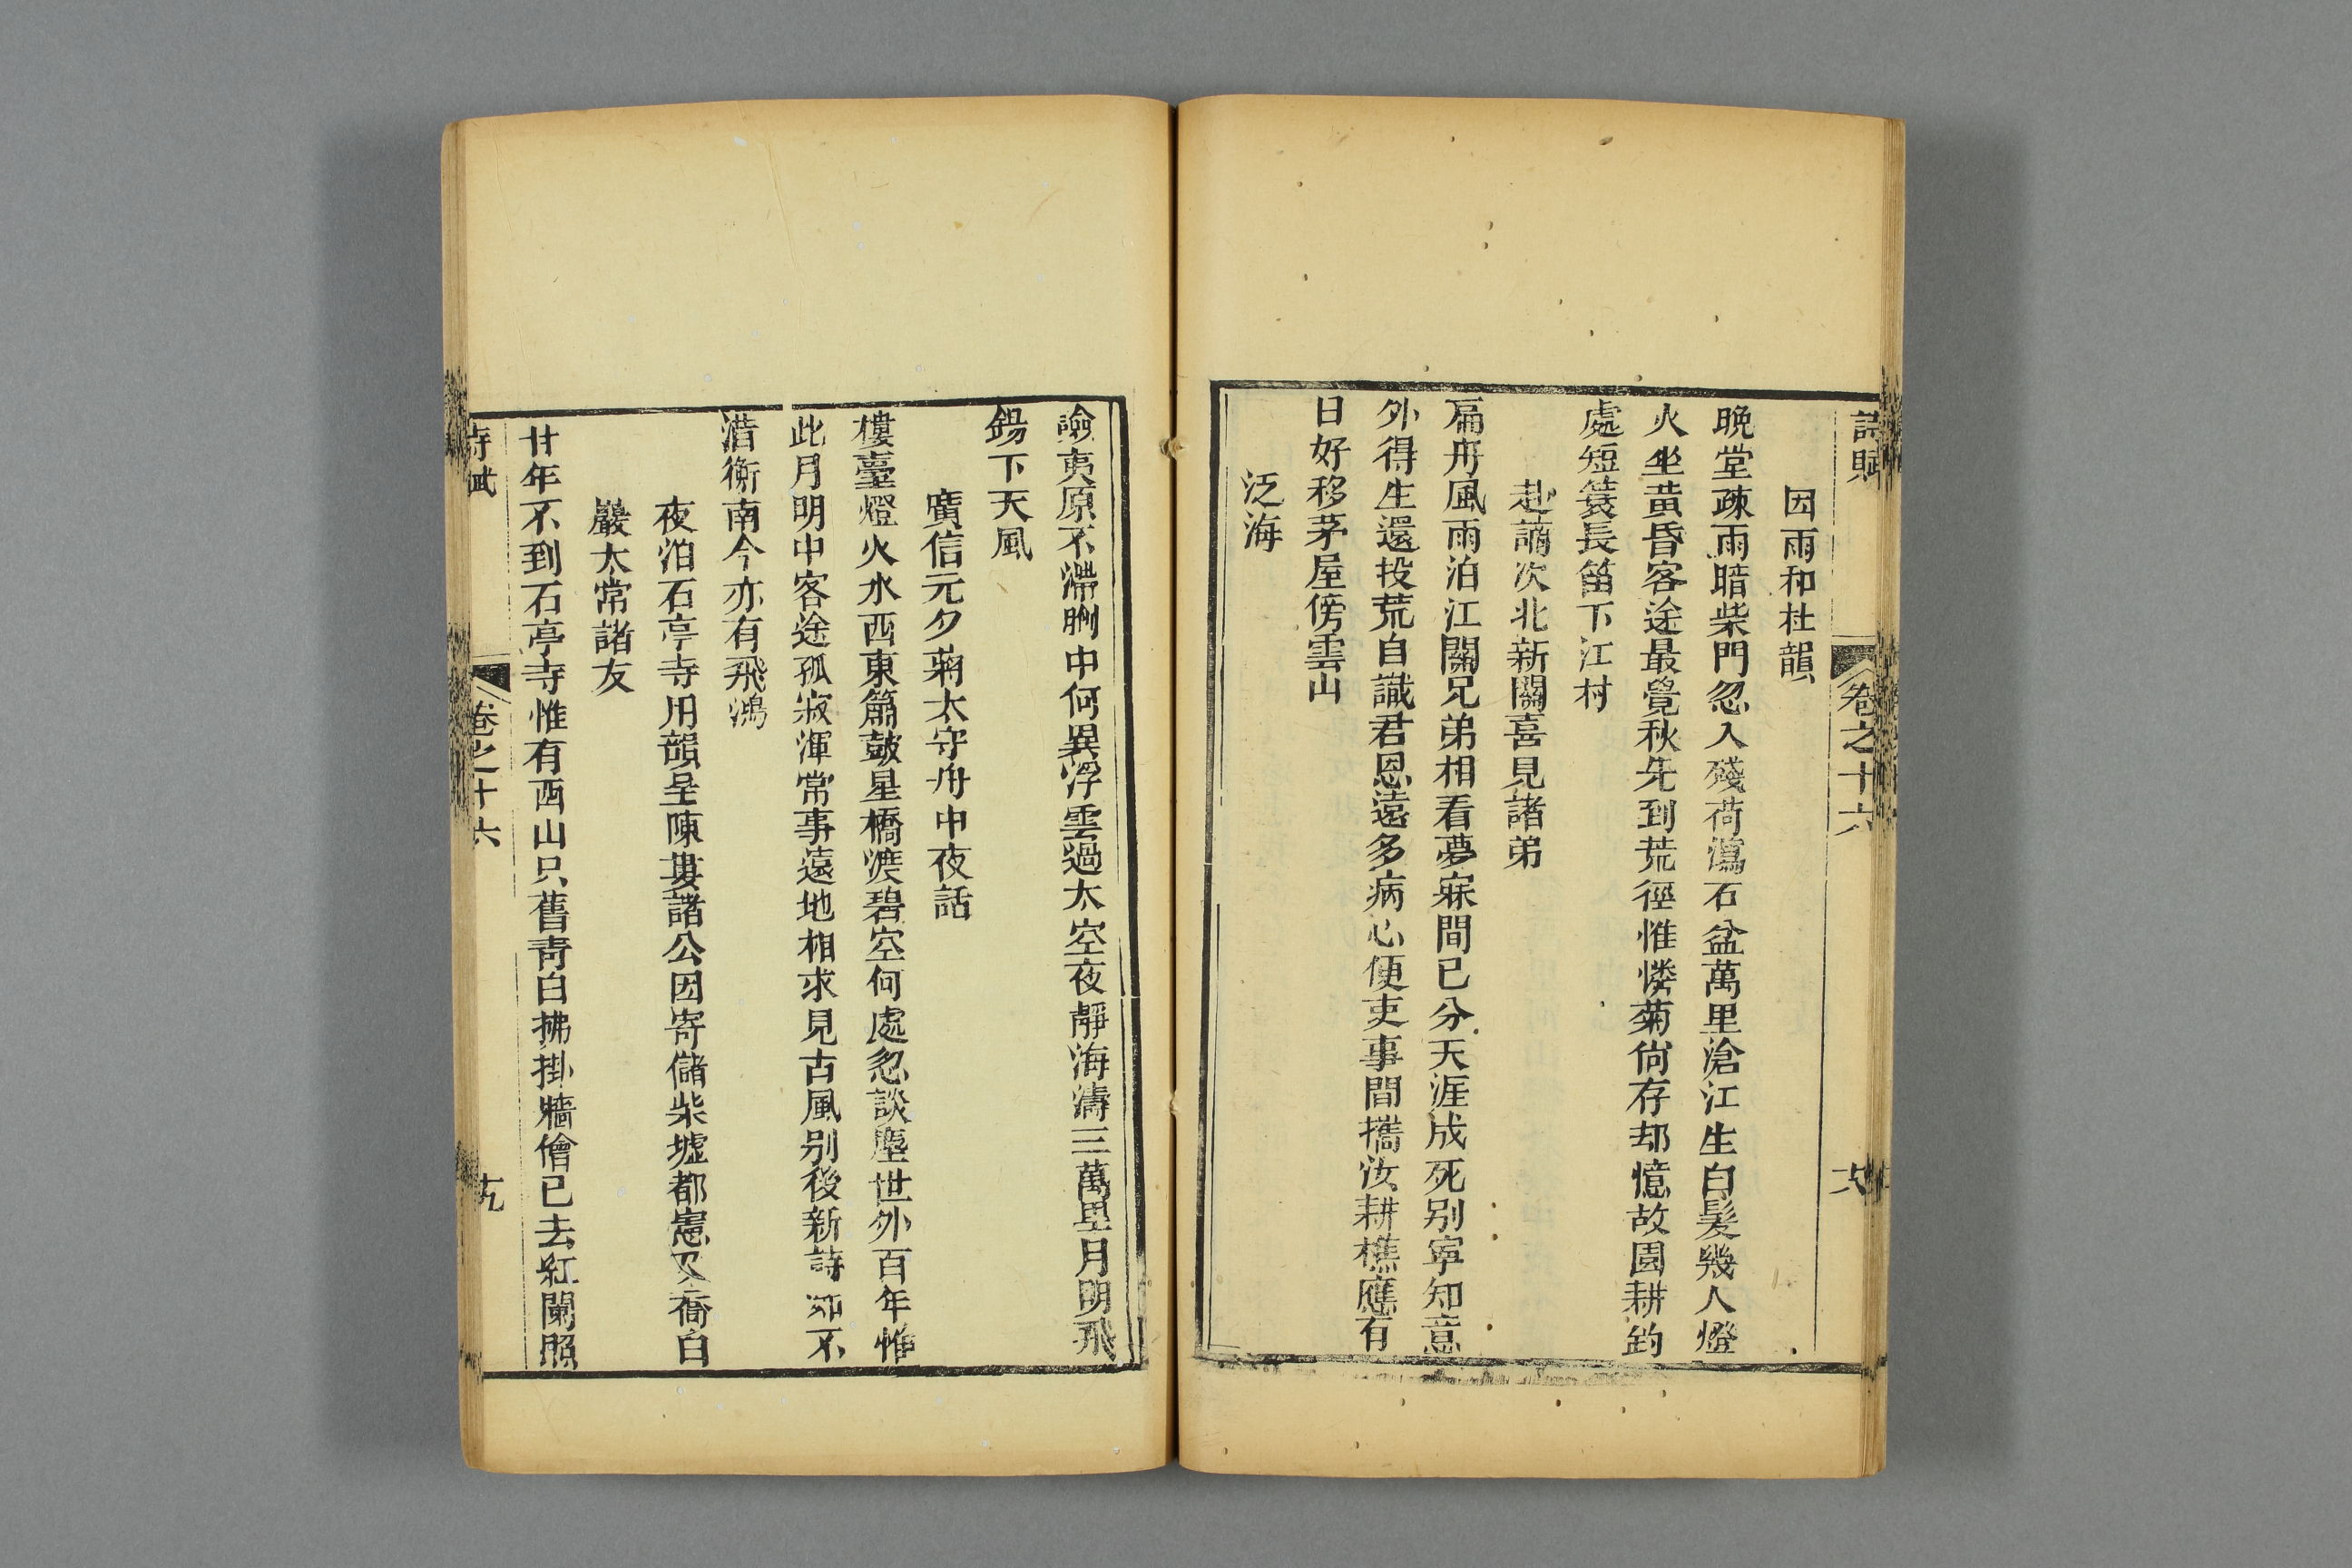 詩賦 卷之十六 十八
因雨和杜韻
晩堂疎雨暗柴門忽入殘荷瀉石盆萬里滄江生白髮幾人燈
火坐黄昏客途最覺秋先到荒徑惟憐菊尙存却憶故園耕釣
處短簑長笛下江村
赴謫次北新關喜見諸弟
扁舟風雨泊江關兄弟相看夢寐間已分天涯成死别寧知意
外得生還投荒自識君恩遠多病心便吏事間擕汝耕樵應有
日好移茅屋傍雲山
泛海
險夷原不滯胷中何異浮雲過太空夜靜海濤三萬里月明飛
錫下天風
廣信元夕蔣太守舟中夜話
樓臺燈火水西東簫皷星橋渡碧空何處忽談塵世外百年惟
此月明中客途孤寂渾常事遠地相求見古風别後新詩如不
惜衡南今亦有飛鴻
夜泊石亭寺用韻呈陳婁諸公因寄儲柴墟都憲及喬白
巖太常諸友
廿年不到石亭寺惟有西山只舊靑白拂掛牆僧已去紅闌照
詩賦 卷之十六 十九